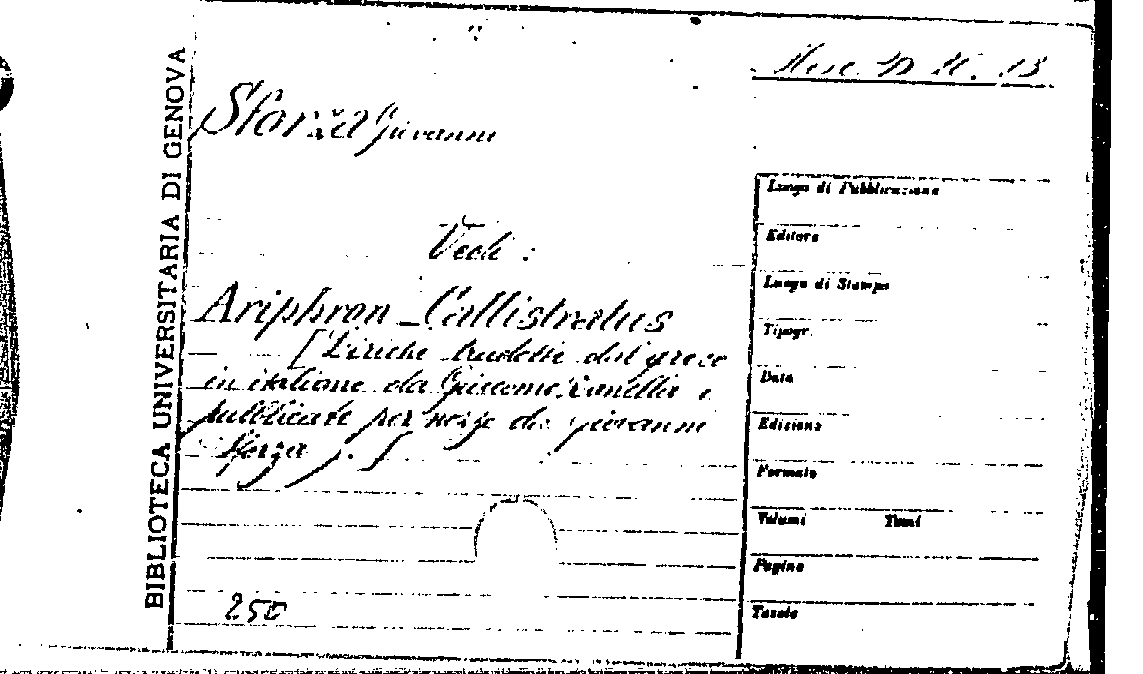 BIBLIOTECA UNIVERSITARIA DI GENOVA
Misc. D. 13
Sforza Giovanni
Vedi :
Ariphron - Callistratus
[Liriche tradotte dal greco
in italiano da Giacomo Zanella e
pubblicate per nozze di Giovanni
Sforza ]
250
Luogo di Pubblicazione
Editore
Luogo di Stampa
Tipogr.
Data
Edizione
Formato
Volumi Tomi
Pagine
Tavole